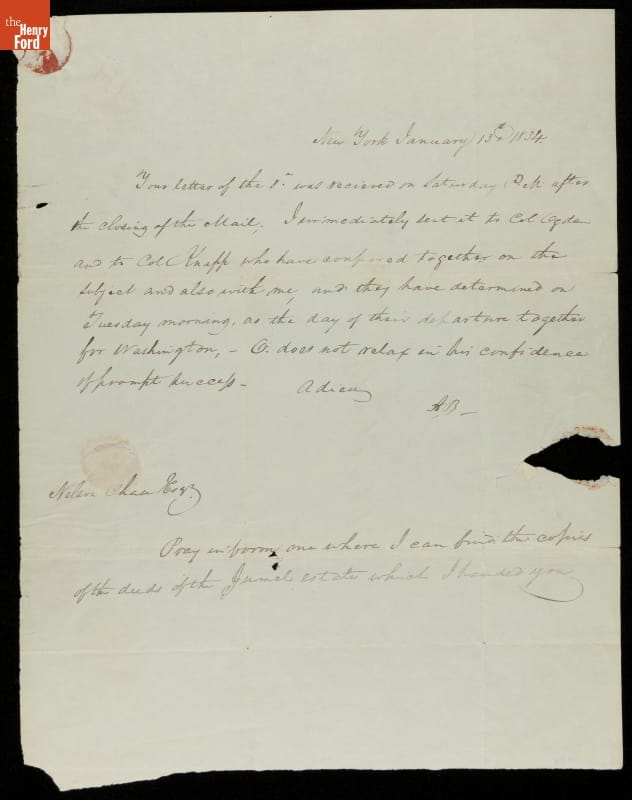 the
Henry
Ford
New York January 13th 1834
Your letter of the 8th was recieved on Saturday P.M after
the closing of the Mail. I immediately sent it to Col Ogden
and to Col Knapp who have conferred together on the
subject and also with me, and they have determined on
Tuesday morning, as the day of their departure together
for Washington, – O. does not relax in his confidence
of prompt success –
Adieu
AB –
Nelson Chase Esqr.
Pray inform me where I can find the copies
of the deeds of the Jumel estate which I handed you